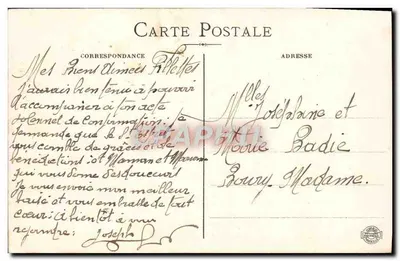 CARTE POSTALE
CORRESPONDANCE
ADRESSE
Mes Biens Aimées Fillettes
J'aurais bien tenus à pouvoir
d'accompanér à ton acté
solennel de Confirmation: Je
demande que le St
vous comble de grâces et de
bénédictions et Maman et
qui vous aime
Je vous envoie mon meilleur
baisé et vous emballe de tout
cœur: à bientôt à vous
rejoindre: Joseph
Mlles Joséphine et
Marie Badie
Boury-Madame.